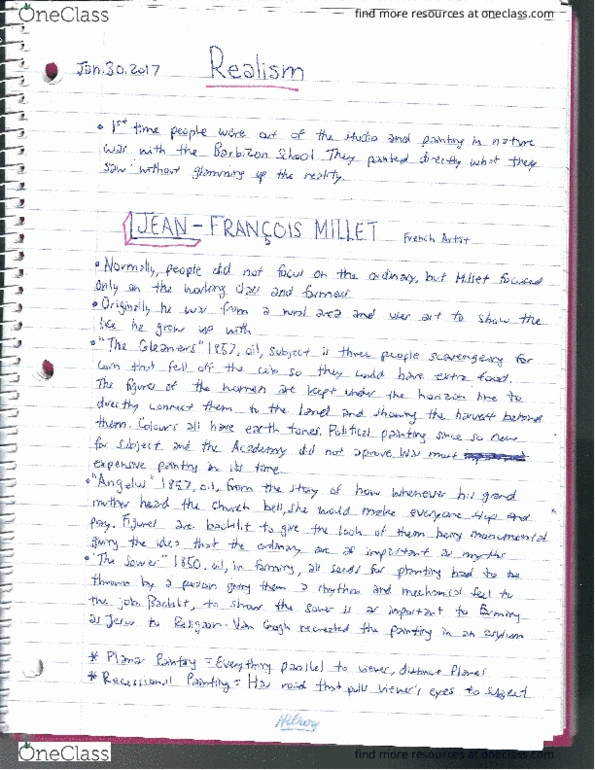 OneClass
find more resources at oneclass.com
Jan.30.2017
Realism
• 1st time people were out of the studio and painting in nature
was with the Barbizon School. They painted directly what they
saw without glamming up the reality.
JEAN-FRANÇOIS MILLET French Artist
• Normally, people did not focus on the ordinary, but Millet focused
only on the working class and farmers
• Originally he was from a rural area and uses art to show the
life he grew up with
• "The Gleaners" 1857, oil, subject is three people scavengency for
corn that fell off the cob so they could have extra food.
The figures of the women are kept under the horizon line to
directly connect them to the land and showing the harvest behind
them. Colours all have earth tones. Political painting since so new
for subject and the Academy did not aprove. Was most
expensive painting in its time.
• "Angelus" 1857, oil, from the story of how whenever his grand
mother heard the church bell, she would make everyone stop and
pray. Figures are backlit to give the look of them being monumental
giving the idea that the ordinary are as important as myths
• "The Sower" 1850, oil, in farming, all seeds for planting had to be
thrown by a person giving them a rhythm and mechanical feel to
the job. Backlit, to show the sower is as important to farming
as Jesus to Religion. Van Gogh recreated the painting in an asylum
* Planar Painting = Everything parallel to viewer, distinct planes
* Recessional Painting = Has road that pulls viewer's eyes to subject
Hilroy
OneClass
find more resources at oneclass.com